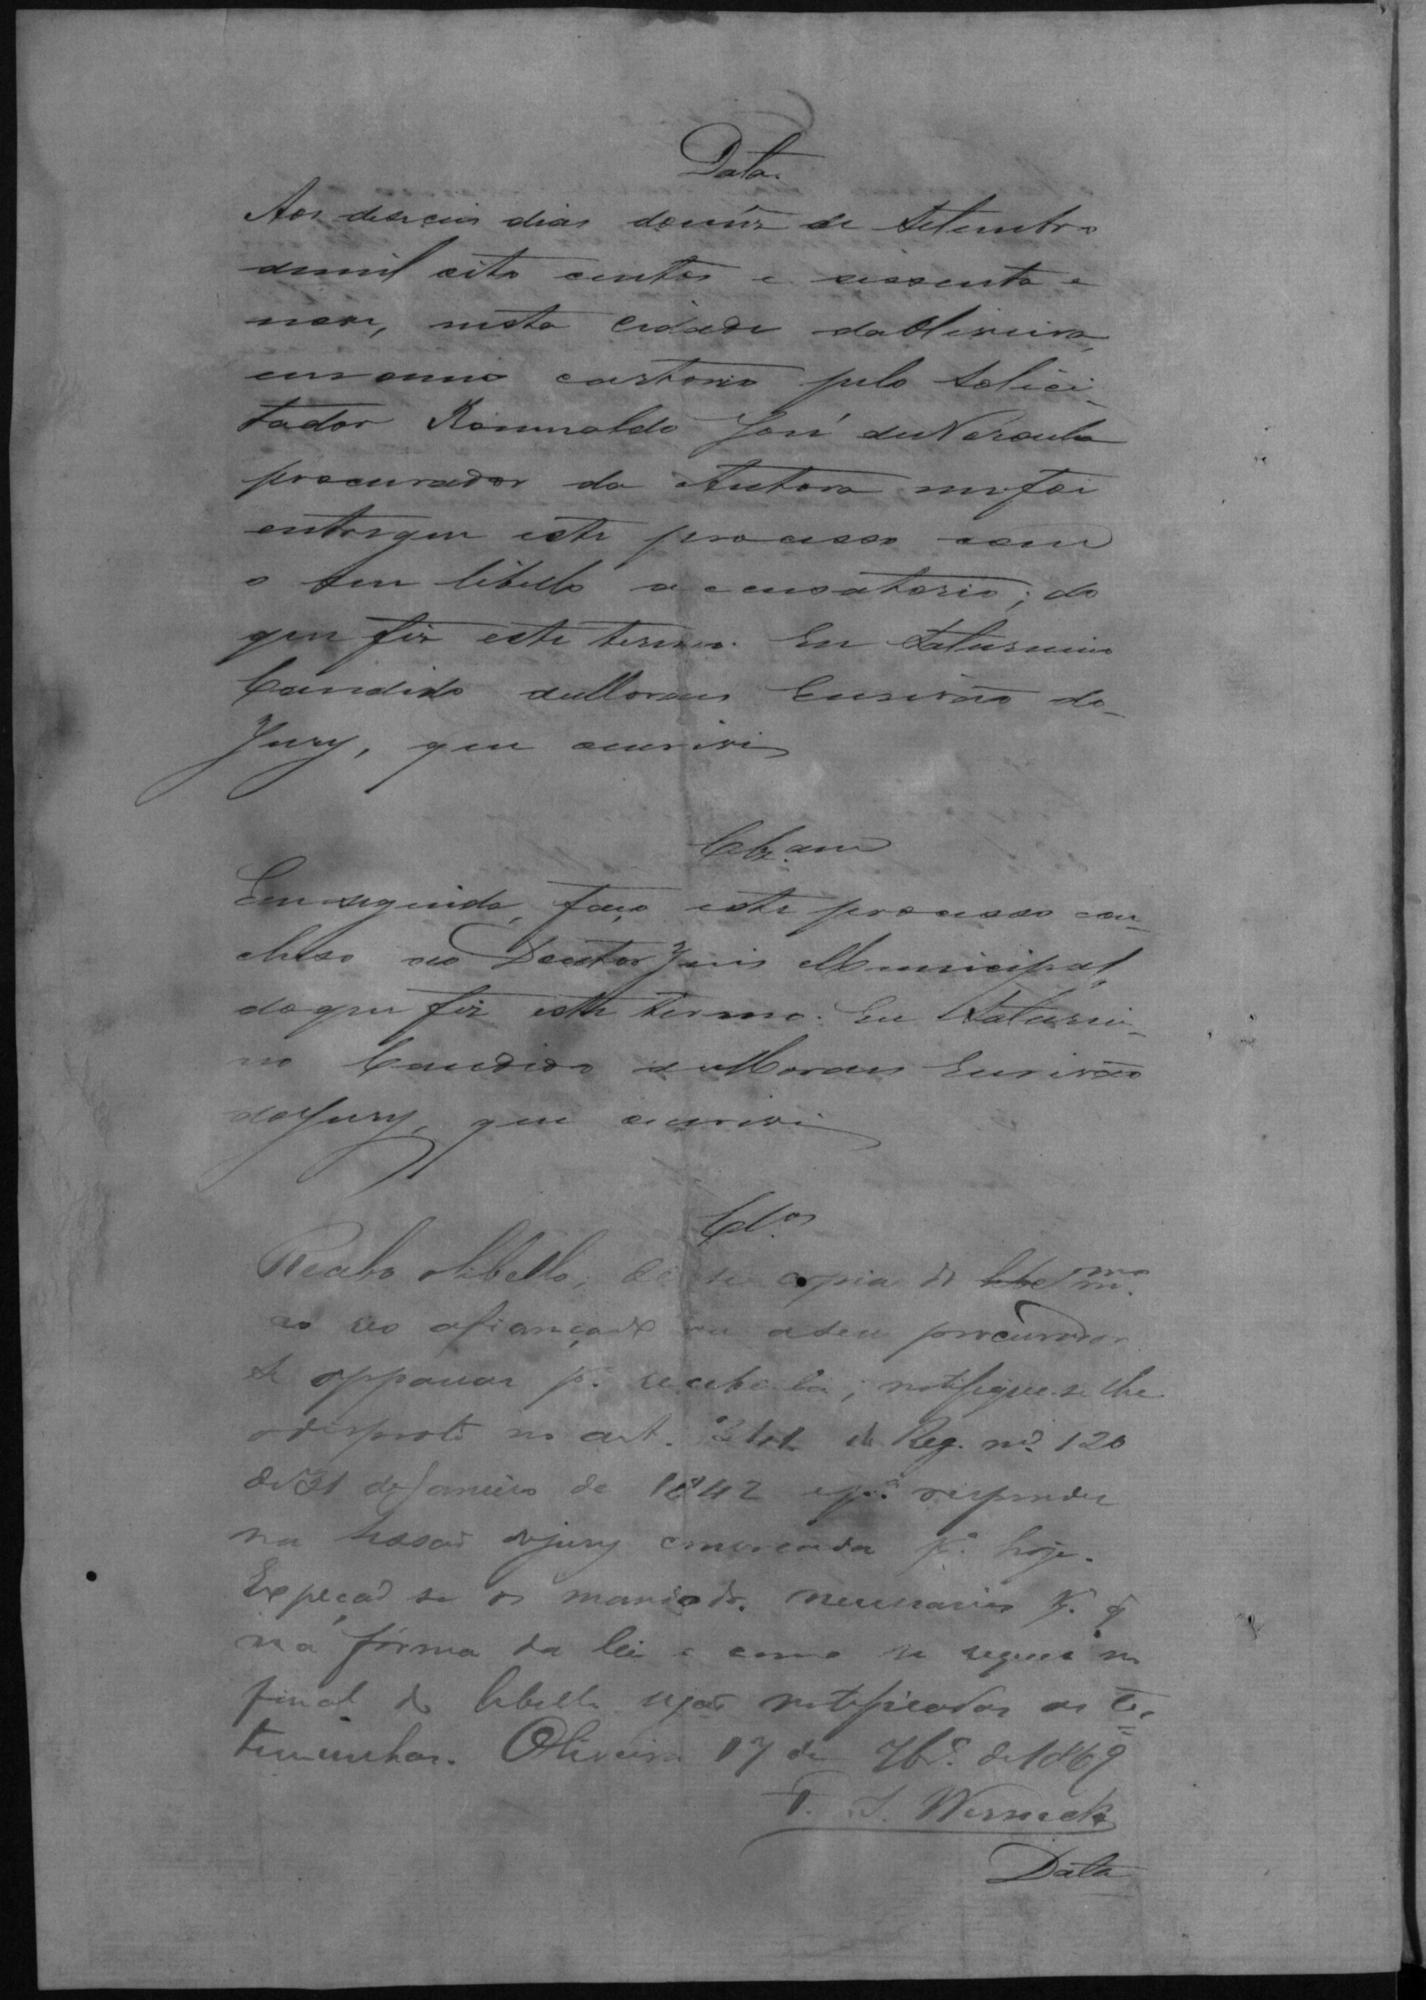 Data
Aos deseceis dias do mês de Setembro
de mil oito centos e sessenta e
nove, nesta Cidade da Oliveira,
em meu cartorio pelo Solici-
tador Romualdo José de
procurador da Autora me foi
entregue este processo com
o seu libello accusatorio; do
que fiz este termo. Eu Saturnino
Candido de Moraes Escrivão do
Jury, que escrevi
Clz.am
Em seguida, faço este processo con-
cluso ao Doutor Juis Municipal,
do que fiz este termo. Eu Saturni-
no Candido de Moraes Escrivão
do Jury, que escrevi
Cl.os
Recebo o libello; dê se copia do m.mo
ao reo afiançado ou a seu procurador
se apparecer p.a recebe la; notifique-se lhe
o disposto no art. do Reg. n.o 120
de 31 de Janeiro de 1842 e p.a responder
na sessão do jury convocada p.a hoje.
Expeção se os mandados necessarios p.a q
na fórma da lei e como se requer no
final do libello sejão notificadas as tes
temunhas. Oliveira 17 de 7br.o de 1869
T. J. Werneck
Data